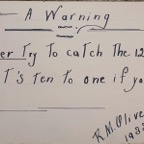 A Warning
er Try to catch the 12
T's ten to one if yo
R.M. Olive
193